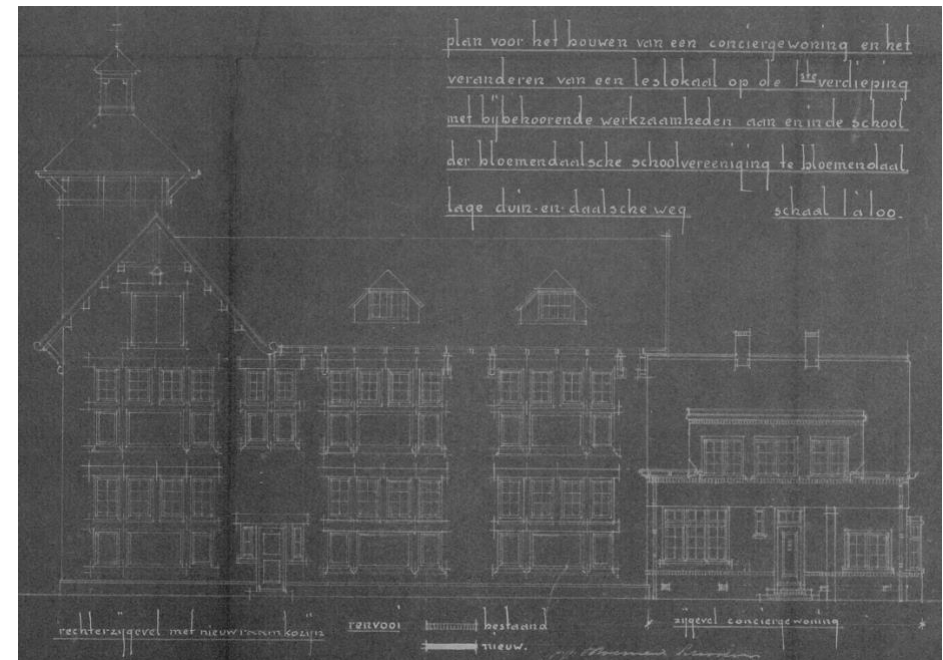 plan voor het bouwen van een conciergewoning en het
veranderen van een leslokaal op de 1ste verdieping
met bijbehoorende werkzaamheden aan en in de school
der bloemendaalsche schoolvereeniging te bloemendaal
lage duin-en-daalsche weg. schaal 1 à 100.
rechterzijgevel met nieuw raamkozijn
renvooi bestaand
nieuw.
zijgevel conciergewoning